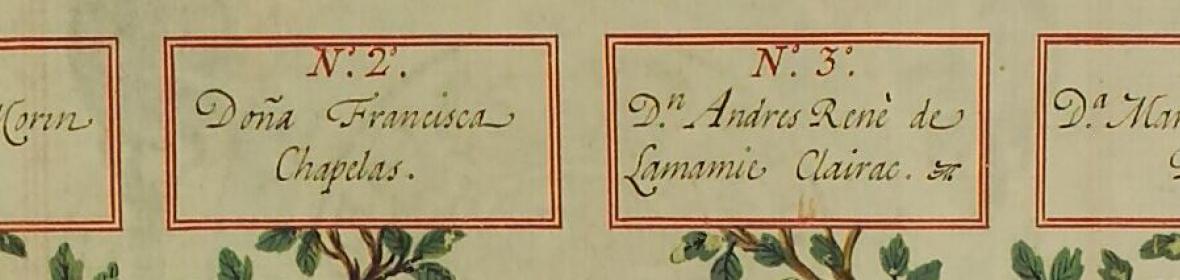 Morin
N.º 2.º
Doña Francisca
Chapelas.
N.º 3.º
D.ⁿ Andres Renè de
Lamamie Clairac.
D.ª Mar